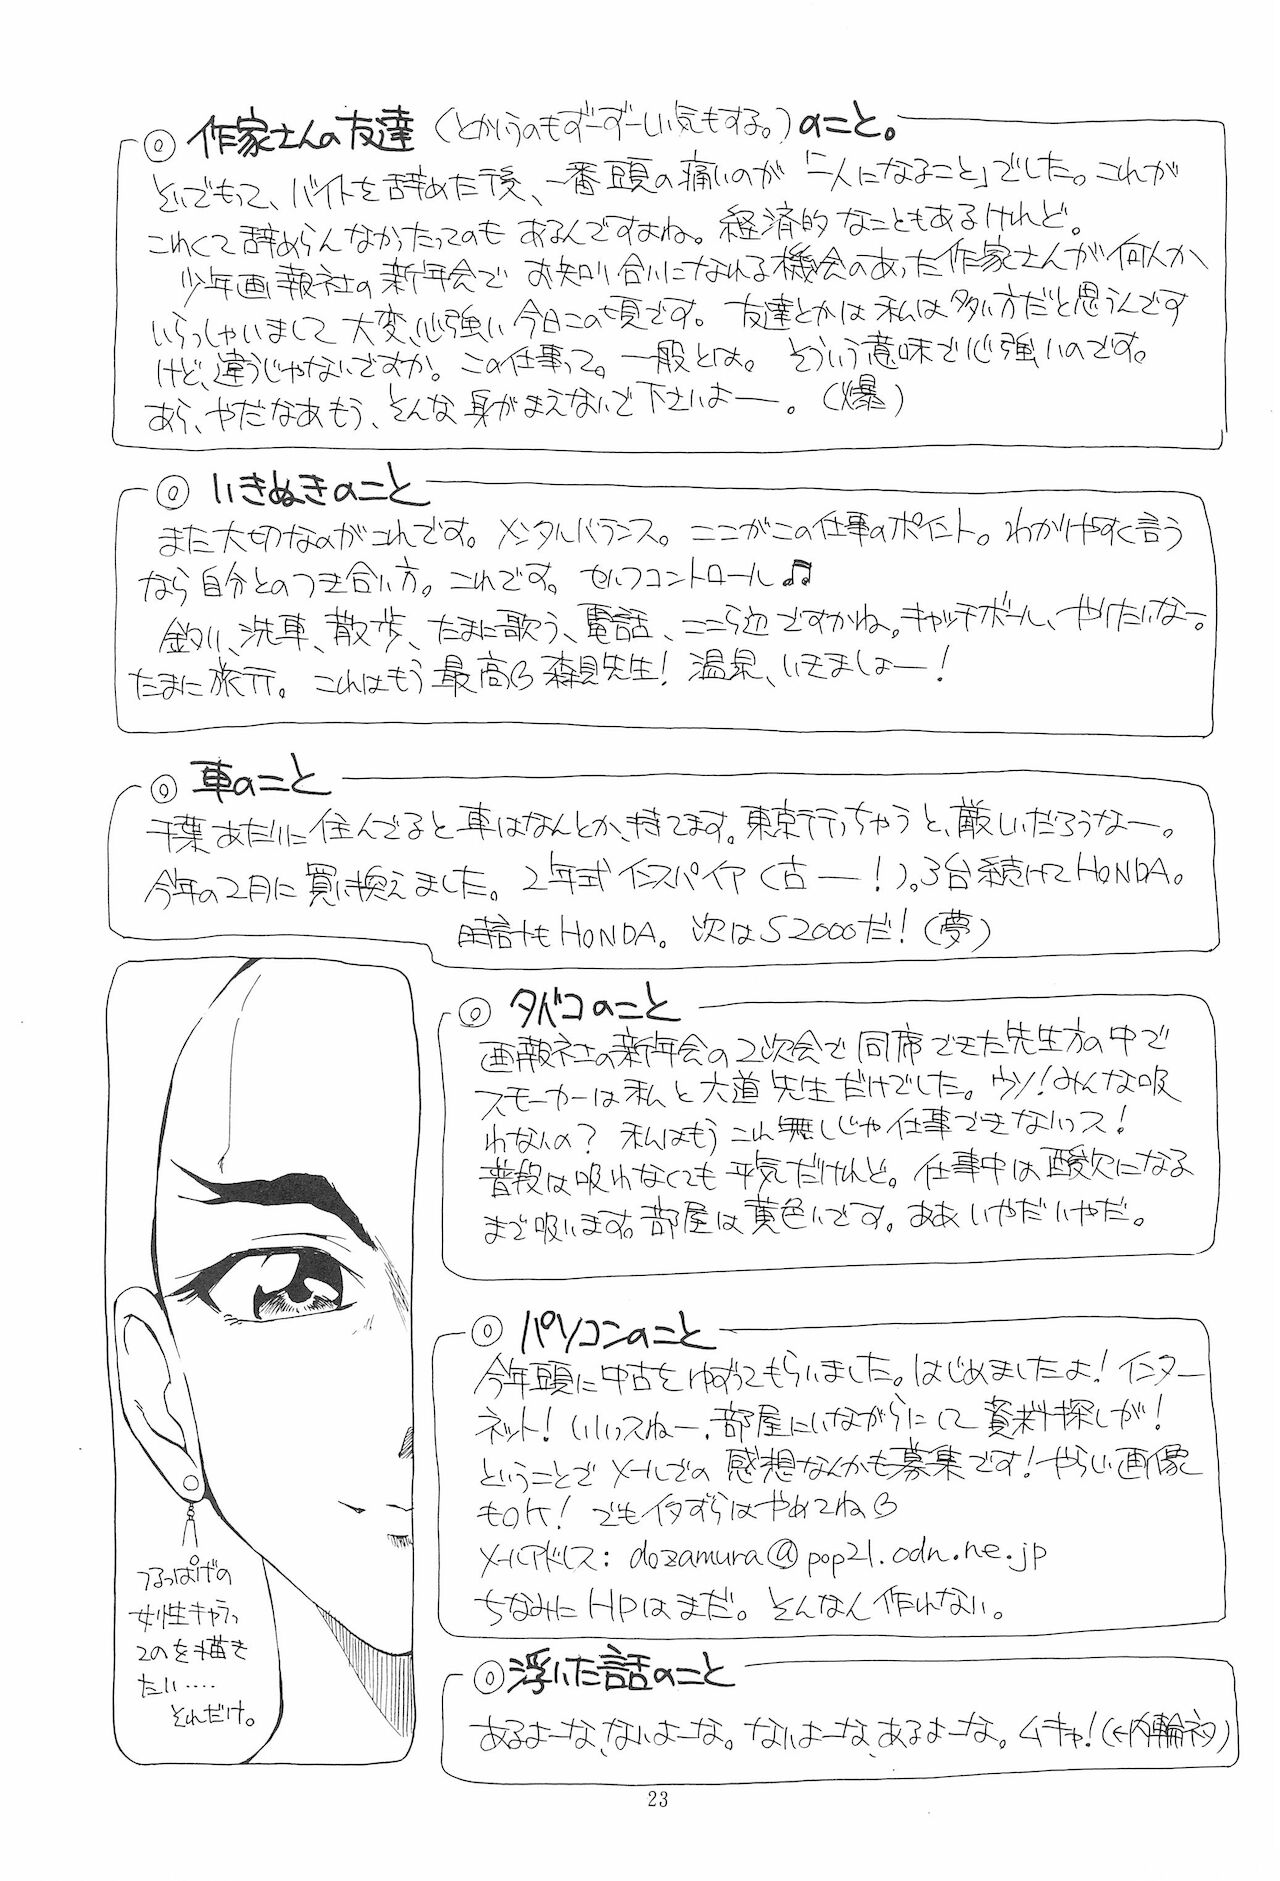 ◎ 作家さんの友達(とかいうのもずーずーしい気もする。)のこと。
そいでもって、バイトを辞めた後、一番頭の痛いのが「一人になること」でした。これが
こわくて辞めらんなかったってのもあるんですよね。経済的なこともあるけれど。
少年画報社の新年会でお知り合いになれる機会のあった作家さんが何人か
いらっしゃいまして大変、心強い今日この頃です。友達とかは私は多い方だと思うんです
けど、違うじゃないですか。この仕事って。一般とは。そういう意味で心強いのです。
あら、やだなあもう、そんな身がまえないで下さいよー。(爆)
◎ いきぬきのこと
また大切なのがこれです。メンタルバランス。ここがこの仕事のポイント。わかりやすく言う
なら自分とのつき合い方。これです。セルフコントロール♫
釣り、洗車、散歩、たまに歌う、電話、ここら辺ですかね。キャッチボール、やりたいなー。
たまに旅行。これはもう最高 森見先生!温泉、いきましょー!
◎ 車のこと
千葉あたりに住んでると車はなんとか、持てます。東京行っちゃうと、厳しいだろうなー。
今年の2月に買い換えました。2年式インスパイア(古ー!)。3台続けてHONDA。
時計もHONDA。次はS2000だ!(夢)
◎ タバコのこと
画報社の新年会の2次会で同席できた先生方の中で
スモーカーは私と大道先生だけでした。ウソ!みんな吸
わないの?私はもうこれ無しじゃ仕事できないっス!
普段は吸わなくても平気だけれど。仕事中は酸欠になる
まで吸います。部屋は黄色いです。ああいやだいやだ。
◎ パソコンのこと
今年頭に中古をゆずってもらいました。はじめましたよ!インター
ネット!いいっスねー、部屋にいながらにして資料探しが!
ということでメールでの感想なんかも募集です!やらしい画像
もOK!でもイタずらはやめてね
メールアドレス:dozamura@pop21.odn.ne.jp
ちなみにHPはまだ。そんなん作れない。
◎ 浮いた話のこと
あるよーな、ないよーな。ないよーな、あるよーな。ムキャ!(←内輪ネタ)
つるっぱげの
女性キャラっ
てのを描き
たい‥‥
それだけ。
23